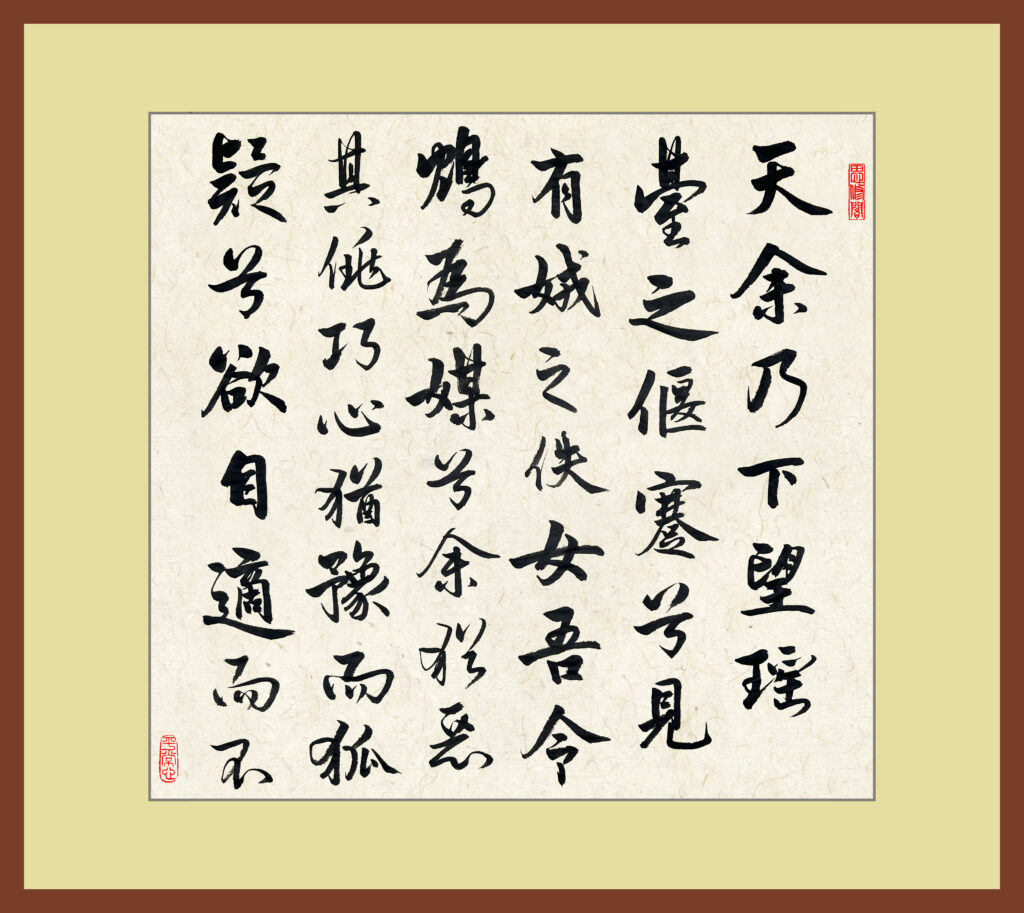 思修閣
天余乃下望瑶
臺之偃蹇兮見
有娀之佚女吾令
鴆為媒兮余犹惡
其佻巧心猶豫而狐
疑兮欲自適而不
平常心